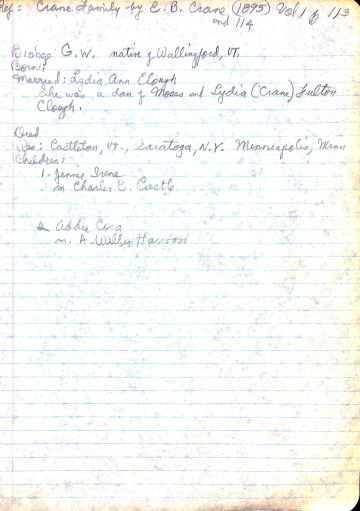 Ref: Crane Family by E. B. Crane (1895) Vol 1 p 113
and 114
Bishop G. W. native of Wallingford, VT.
Born:
Married: Lydia Ann Clough
She was a dau of Moses and Lydia (Crane) Fulton
Clough.
Died
Res: Castleton, VT., Saratoga, N.Y. Minneapolis, Minn
Children:
1- Jennie Irene
m Charles E. Castle
2 Addie Cora
m. A- Willis